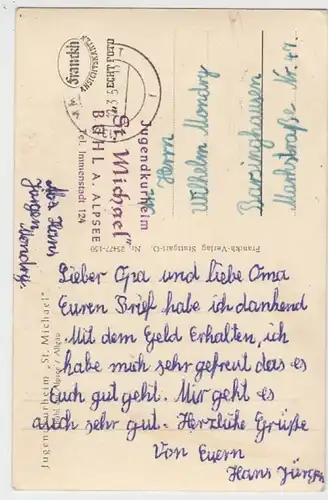 Jugendkurheim
"St. Michael"
BÜHL A. ALPSEE
Tel. Immenstadt 124
Franckh
ANSICHTSKARTEN
ECHT FOTO
Herrn
Wilhelm Mondry
Barsinghausen
Marktstraße Nr. 47
Abs Hans
Jürgen
Mondry.
Franckh-Verlag Stuttgart-O.
Nr. 25477-150
Jugendkurheim "St. Michael"
Bühl a. Alpsee / Allgäu
Lieber Opa und liebe Oma
Euren Brief habe ich dankend
Mit dem Geld Erhalten, ich
habe mich sehr gefreut das es
Euch gut geht. Mir geht es
auch sehr gut. Herzliche Grüße
Von Euern
Hans Jürgen